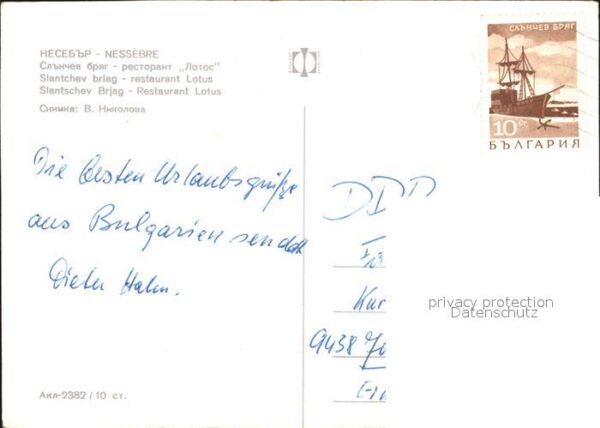 НЕСЕБЪР - NESSÈBRE
Слънчев бряг - ресторант „Лотос"
Slantchev briag - restaurant Lotus
Slantschev Brjag - Restaurant Lotus
Снимка: В. Николова
СЛЪНЧЕВ БРЯГ
10 ст.
БЪЛГАРИЯ
Die besten Urlaubsgrüße
aus Bulgarien sendet
Dieter Hahn.
DDR
Kur
9438
privacy protection
Datenschutz
Акл-2382 / 10 ст.